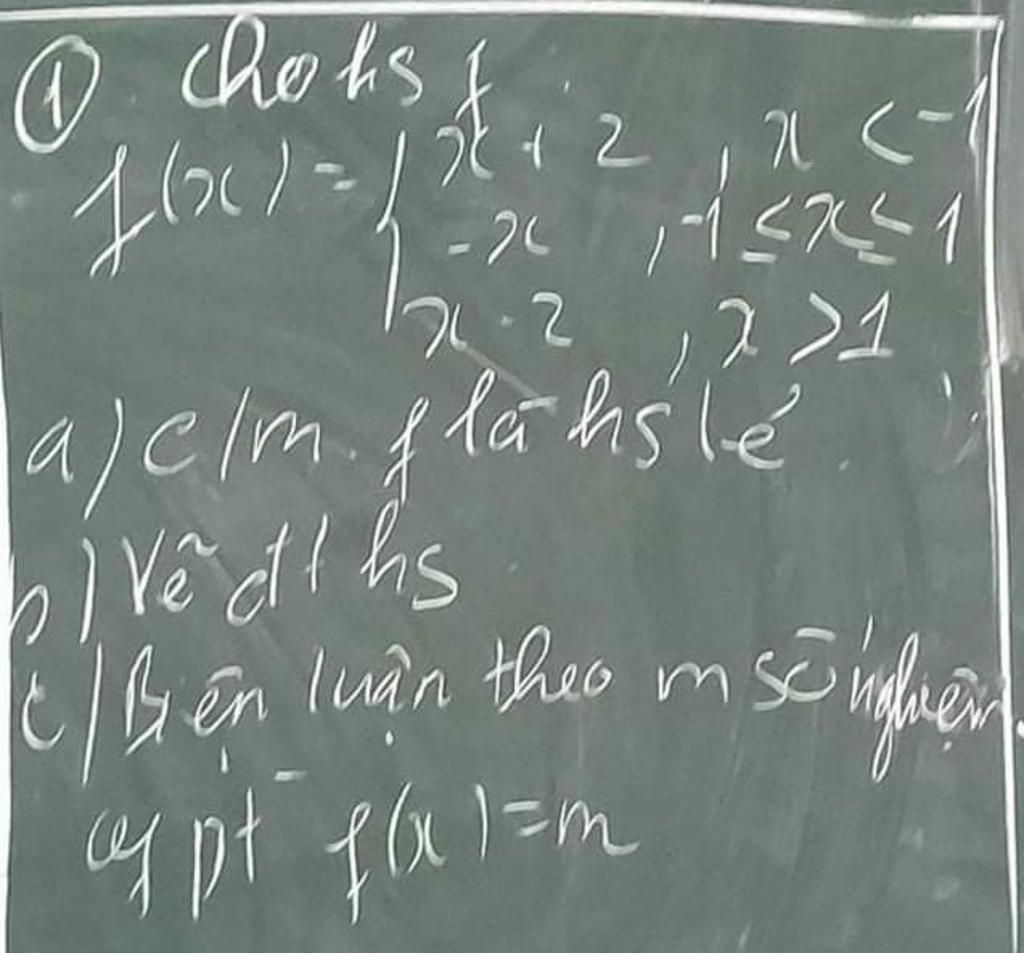 ① Cho hs f.
f(x) = { x + 2 , x < -1
-x , -1 ≤ x ≤ 1
x - 2 , x > 1
a) c/m f là hs lẻ.
b) Vẽ đt hs
c) Biện luận theo m số nghiệm
của pt f(x) = m